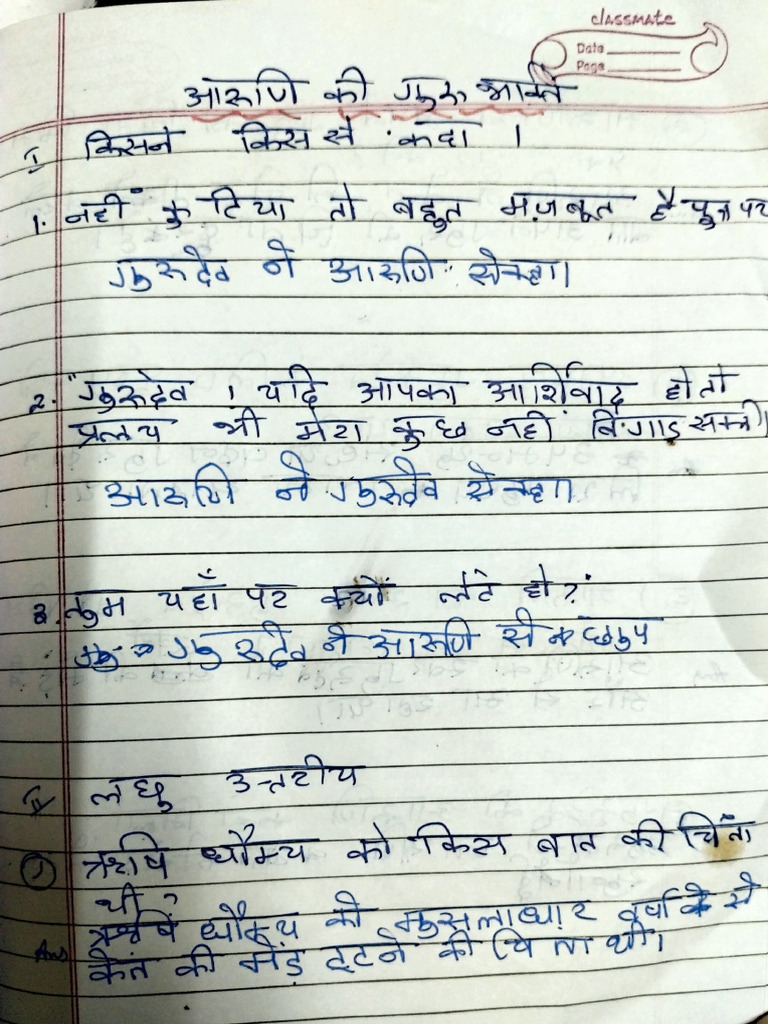 classmate
Date
Page
आरुणि की गुरु भक्ति
I किसने किस से कहा ।
1. नहीं कुटिया तो बहुत मज़बूत है पुत्र पर
गुरुदेव ने आरुणि से कहा।
2. "गुरुदेव । यदि आपका आर्शिवाद हो तो
प्रलय भी मेरा कुछ नही बिगाड़ सकती।
आरुणि ने गुरुदेव से कहा।
3. तुम यहाँ पर क्यों लेटे हो?
गुरुदेव ने आरुणि से
II लघु उत्तरीय
1 ऋषि धौम्य को किस बात की चिंता
थी?
Ans ऋषि धौम्य को मुसलाधार वर्षा के से
की मेड़ टूटने की चिंता थी।